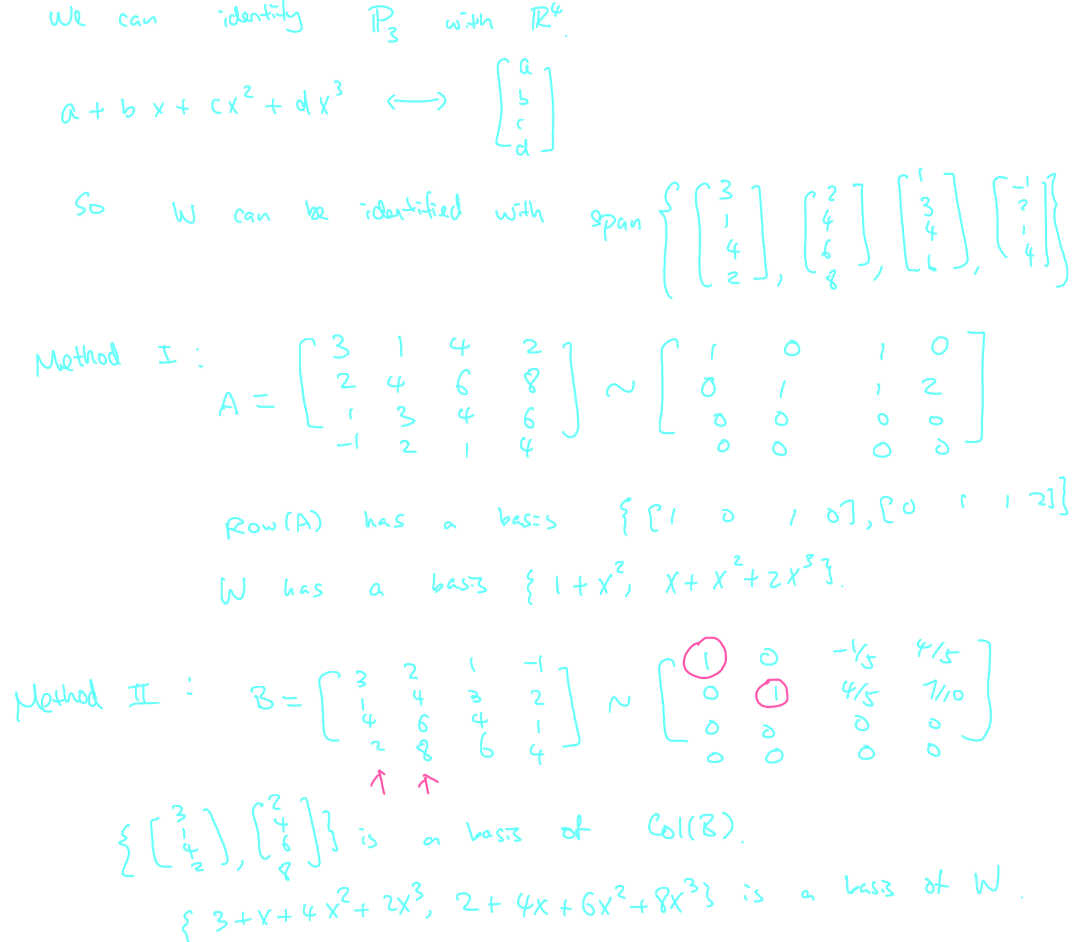 We can identify ℙ₃ with ℝ⁴.
a + b x + cx² + dx³ ⟷ [a b c d]
So W can be identified with span { [3 1 4 2], [2 4 6 8], [1 3 4 6], [-1 2 1 4] }
Method I :
A = [3 1 4 2; 2 4 6 8; 1 3 4 6; -1 2 1 4] ~ [1 0 1 0; 0 1 1 2; 0 0 0 0; 0 0 0 0]
Row(A) has a basis { [1 0 1 0], [0 1 1 2] }
W has a basis { 1 + x², x + x² + 2x³ }.
Method II : B = [3 2 1 -1; 1 4 3 2; 4 6 4 1; 2 8 6 4] ~ [1 0 -1/5 4/5; 0 1 4/5 7/10; 0 0 0 0; 0 0 0 0]
↑ ↑
{ [3 1 4 2], [2 4 6 8] } is a basis of Col(B).
{ 3 + x + 4x² + 2x³, 2 + 4x + 6x² + 8x³ } is a basis of W.